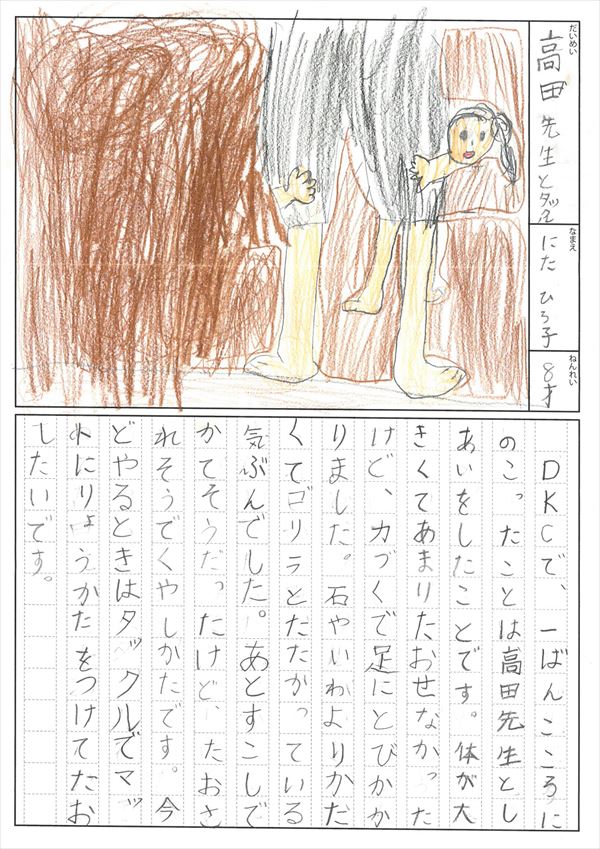 だいめい
高田先生とタックル
なまえ
にた ひろ子
ねんれい
8才
DKCで、一ばんこころに
のこったことは高田先生とし
あいをしたことです。体が大
きくてあまりたおせなかった
けど、力づくで足にとびかか
りました。石やいわよりかた
くてゴリラとたたかっている
気ぶんでした。あとすこしで
かてそうだったけど、たおさ
れそうでくやしかたです。今
どやるときはタックルでマッ
トにりょうかたをつけてたお
したいです。